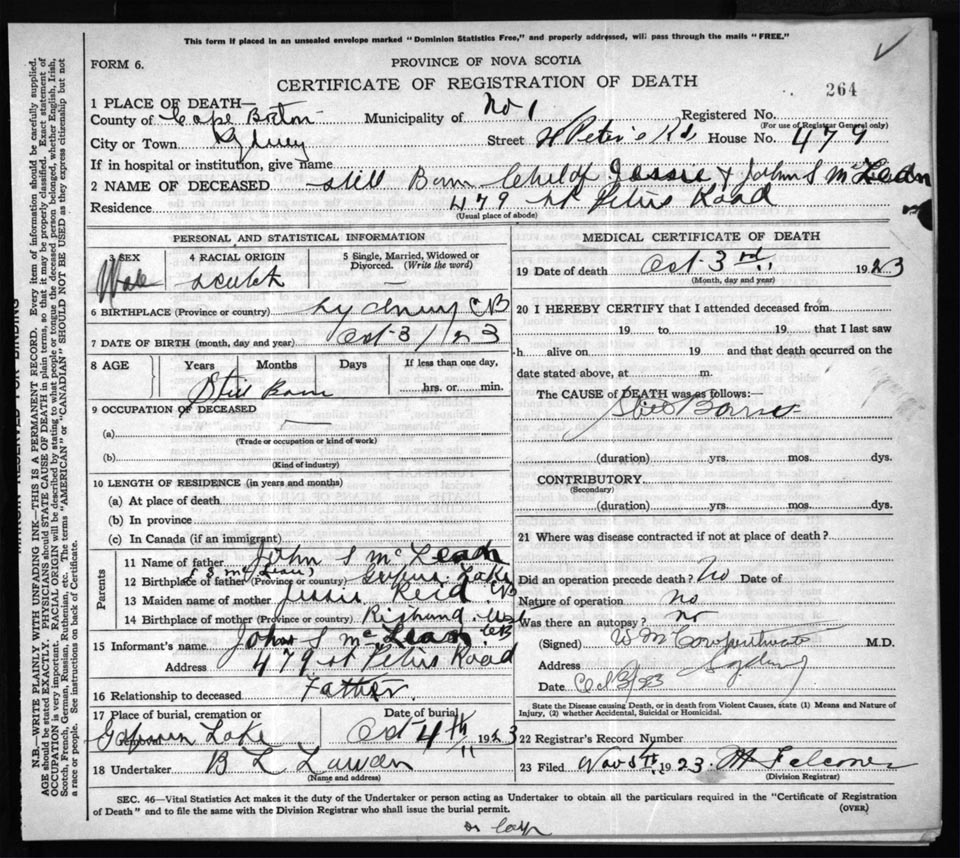 This form if placed in an unsealed envelope marked "Dominion Statistics Free," and properly addressed, will pass through the mails "FREE."
FORM 6.
PROVINCE OF NOVA SCOTIA
CERTIFICATE OF REGISTRATION OF DEATH
264
1 PLACE OF DEATH—
County of Cape Breton Municipality of No 1 Registered No.
(For use of Registrar General only)
City or Town Sydney Street St Peter's Rd House No. 479
If in hospital or institution, give name
2 NAME OF DECEASED still Born Child of Jessie & John S McLean
Residence 479 St Peters Road
(Usual place of abode)
PERSONAL AND STATISTICAL INFORMATION
3 SEX Male
4 RACIAL ORIGIN Scotch
5 Single, Married, Widowed or Divorced. (Write the word)
6 BIRTHPLACE (Province or country) Sydney CB
7 DATE OF BIRTH (month, day and year) Oct 3/1923
8 AGE Years Months Days If less than one day,
hrs. or min.
Still Born
9 OCCUPATION OF DECEASED
(a)
(Trade or occupation or kind of work)
(b)
(Kind of industry)
10 LENGTH OF RESIDENCE (in years and months)
(a) At place of death
(b) In province
(c) In Canada (if an immigrant)
Parents
11 Name of father John S McLean
12 Birthplace of father (Province or country) Lake CB
13 Maiden name of mother Jessie Reid
14 Birthplace of mother (Province or country) CB
15 Informant's name John S McLean
Address 479 St Peters Road
16 Relationship to deceased Father
17 Place of burial, cremation or removal Lake
Date of burial Oct 4th 1923
18 Undertaker B L
(Name and address)
MEDICAL CERTIFICATE OF DEATH
19 Date of death Oct 3rd 1923
(Month, day and year)
20 I HEREBY CERTIFY that I attended deceased from
19 to 19 that I last saw
h alive on 19 and that death occurred on the
date stated above, at m.
The CAUSE OF DEATH was as follows:—
Still Born
(duration) yrs. mos. dys.
CONTRIBUTORY.
(Secondary)
(duration) yrs. mos. dys.
21 Where was disease contracted if not at place of death?
Did an operation precede death? No Date of
Nature of operation no
Was there an autopsy? no
(Signed) W M M.D.
Address Sydney
Date Oct 3/23
State the Disease causing Death, or in death from Violent Causes, state (1) Means and Nature of Injury, (2) whether Accidental, Suicidal or Homicidal.
22 Registrar's Record Number
23 Filed Nov 1923 Falconer
(Division Registrar)
SEC. 46—Vital Statistics Act makes it the duty of the Undertaker or person acting as Undertaker to obtain all the particulars required in the "Certificate of Registration
of Death" and to file the same with the Division Registrar who shall issue the burial permit. (OVER)
MARGIN RESERVED FOR BINDING
N.B.—WRITE PLAINLY WITH UNFADING INK—THIS IS A PERMANENT RECORD. Every item of information should be carefully supplied.
AGE should be stated EXACTLY. PHYSICIANS should STATE CAUSE OF DEATH in plain terms, so that it may be properly classified. Exact statement of
OCCUPATION is very important. RACIAL ORIGIN will be described by stating to what people or tongue the deceased person belonged, whether English, Irish,
Scotch, French, German, Russian, Ruthenian, etc. The terms "AMERICAN" or "CANADIAN" SHOULD NOT BE USED as they express citizenship but not
a race or people. See instructions on back of Certificate.